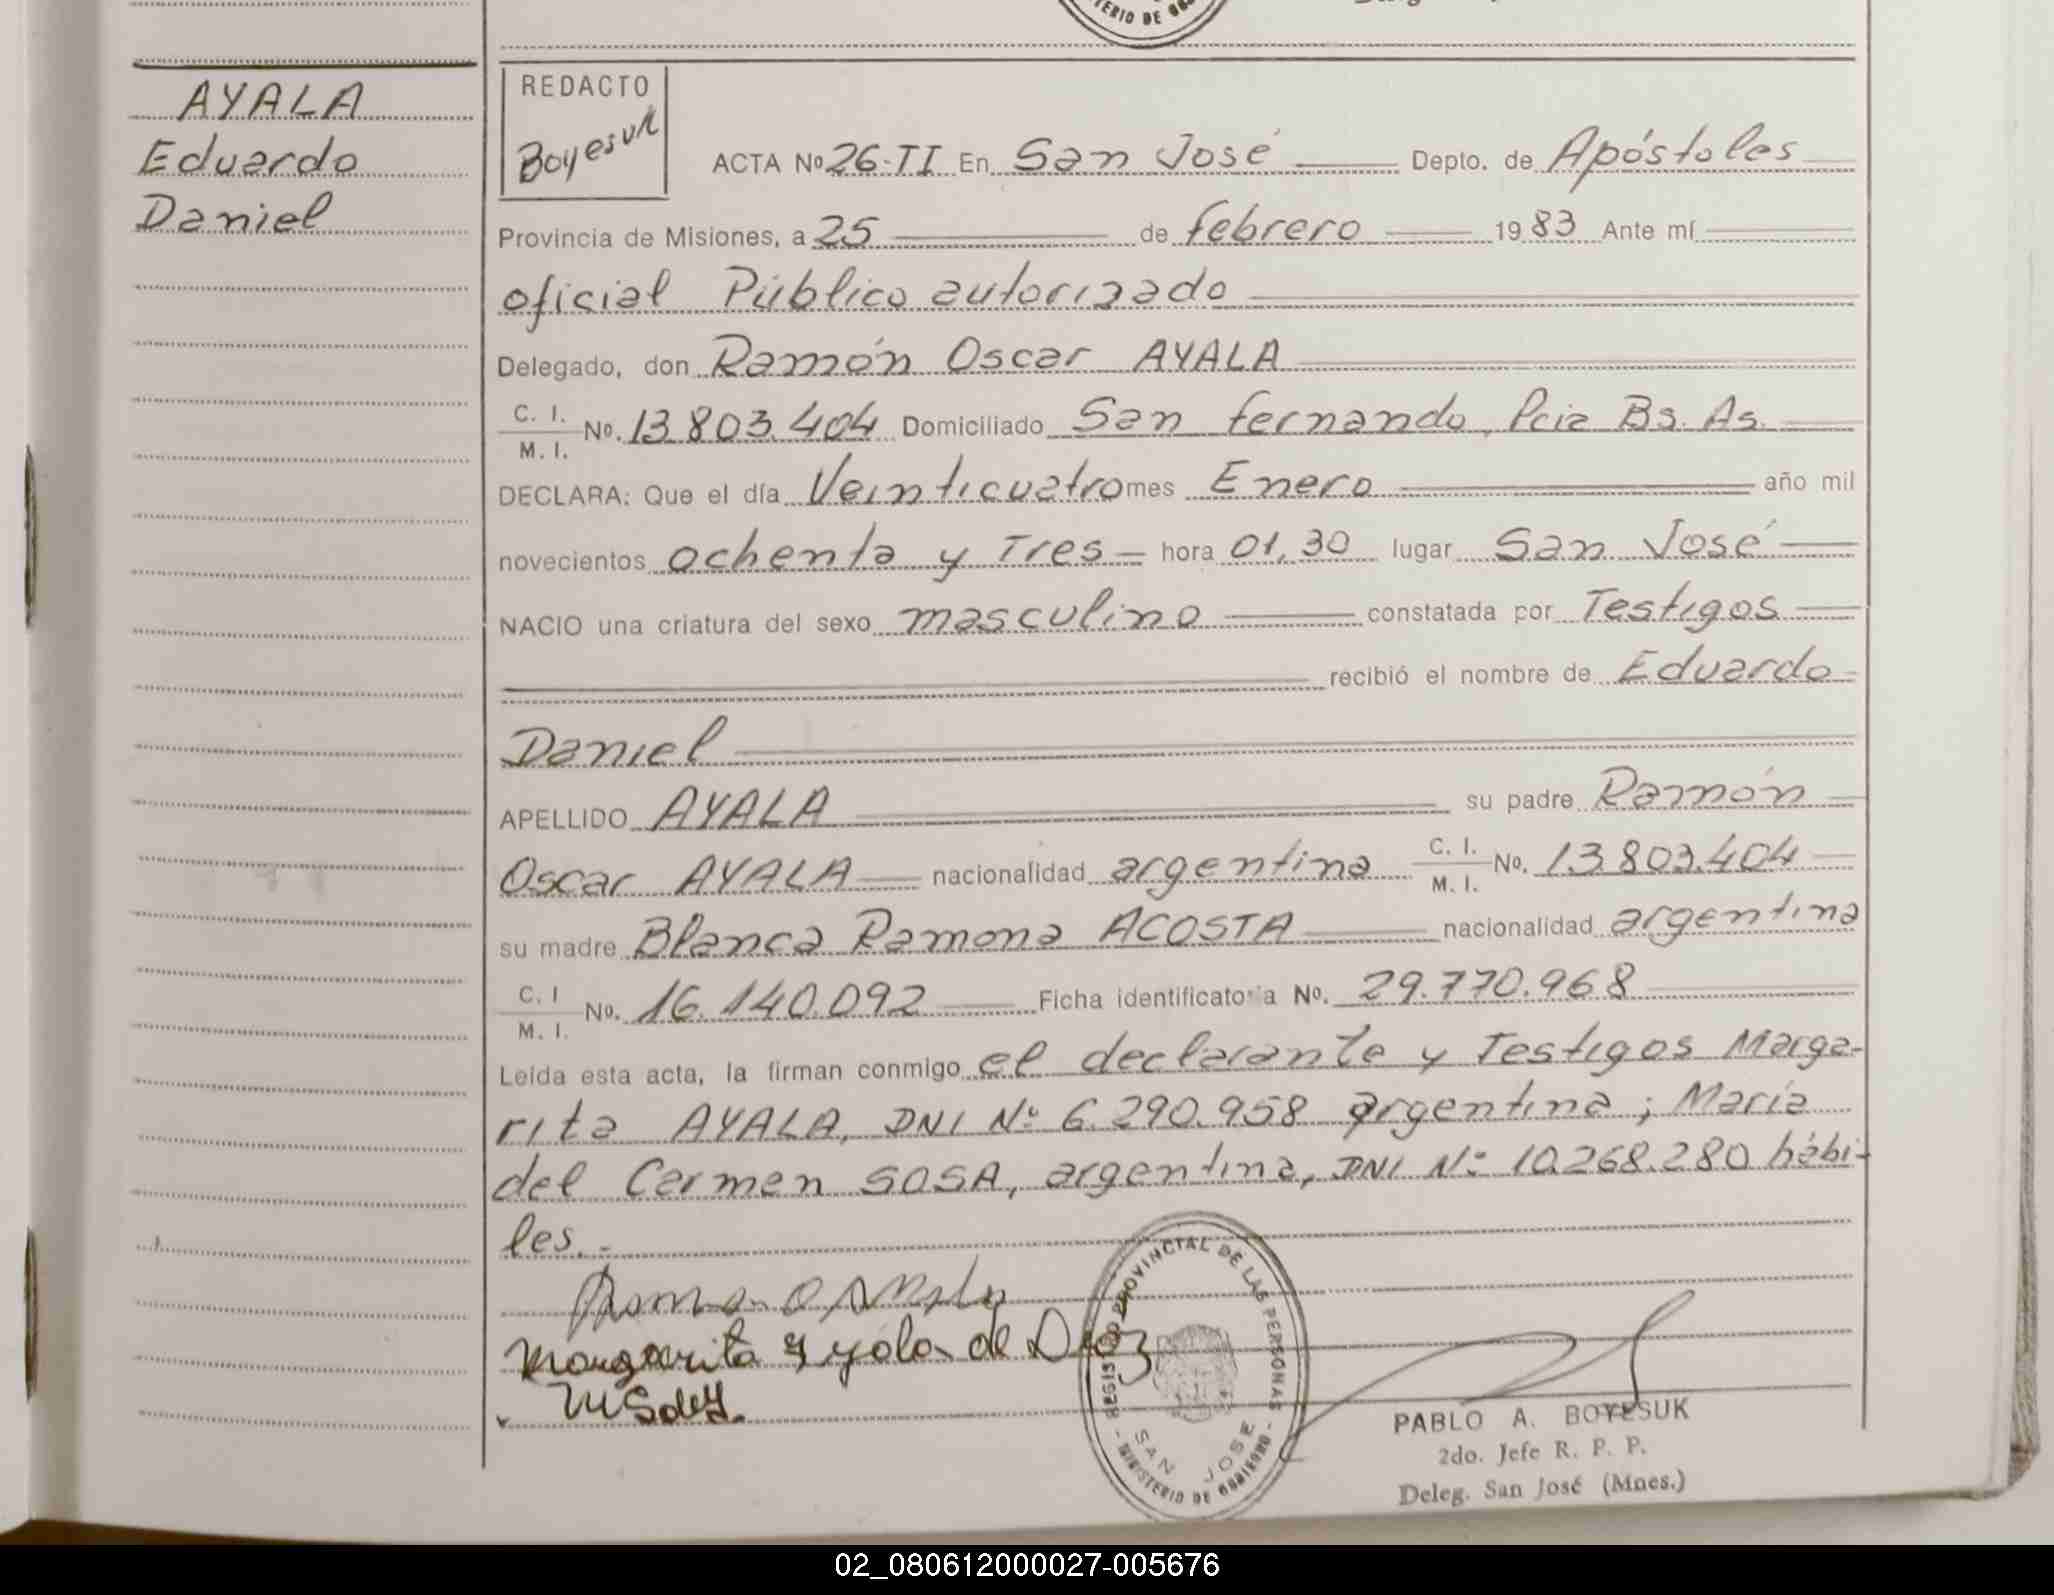 TERIO DE GO
AYALA
Eduardo
Daniel
REDACTO
Boyesuk
ACTA Nº 26-II En San José Depto. de Apóstoles
Provincia de Misiones, a 25 de febrero 1983 Ante mí
oficial Público autorizado
Delegado, don Ramón Oscar AYALA
C. I.
M. I. Nº. 13.803.404 Domiciliado San fernando, Pcia Bs. As.
DECLARA: Que el día Veinticuatro mes Enero año mil
novecientos ochenta y Tres hora 01,30 lugar San José
NACIO una criatura del sexo masculino constatada por Testigos
recibió el nombre de Eduardo
Daniel
APELLIDO AYALA su padre Ramón
Oscar AYALA nacionalidad argentina C. I. M. I. Nº. 13.803.404
su madre Blanca Ramona ACOSTA nacionalidad argentina
C. I
M. I. Nº. 16.140.092 Ficha identificatoria Nº. 29.770.968
Leída esta acta, la firman conmigo el declarante y Testigos Marga-
rita AYALA, DNI Nº 6.290.958 argentina; María
del Carmen SOSA, argentina, DNI Nº 10.268.280 hábi-
les.-
Margarita Ayala de Diaz
REGISTRO PROVINCIAL DE LAS PERSONAS
SAN JOSE
MINISTERIO DE GOBIERNO
PABLO A. BOYESUK
2do. Jefe R. P. P.
Deleg. San José (Mnes.)
02_080612000027-005676